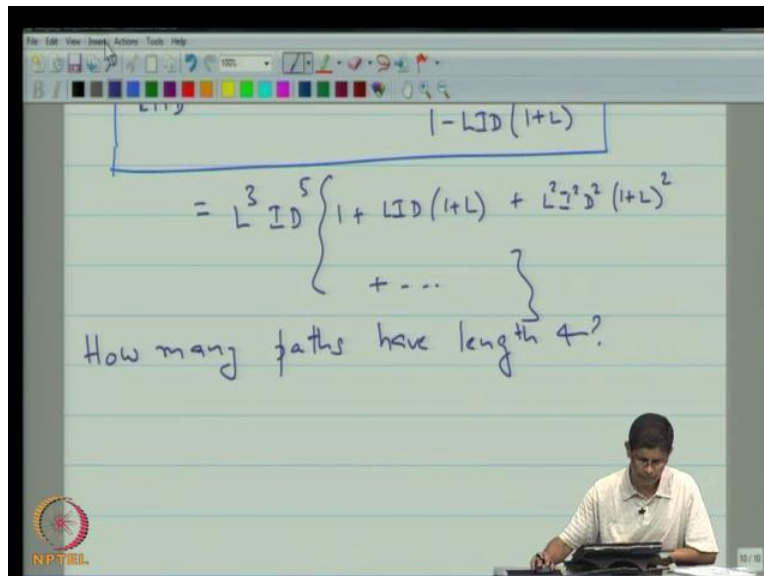 File Edit View Insert Actions Tools Help
100%
B I
1 - LID (1+L)
= L³ I D⁵ { 1 + LID (1+L) + L²I²D² (1+L)²
+ - - - }
How many paths have length 4?
NPTEL
10 / 10